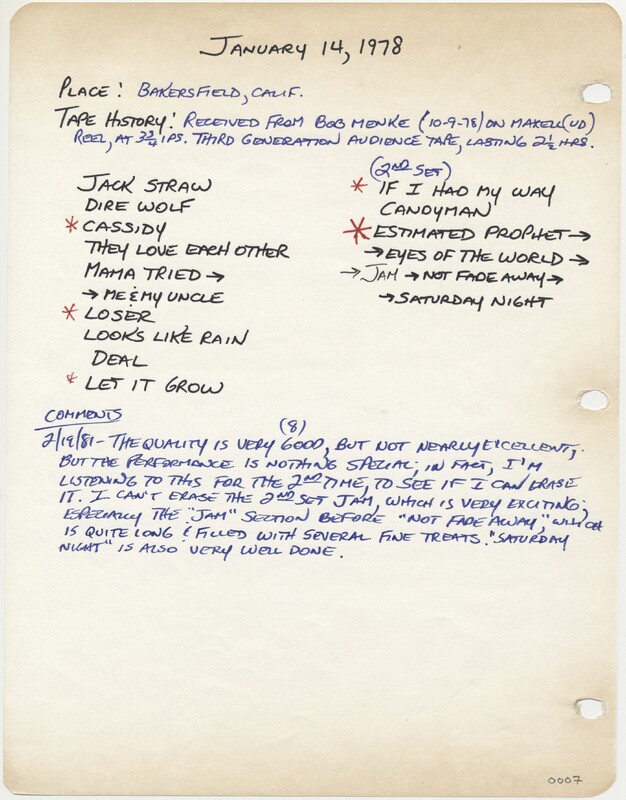 JANUARY 14, 1978
PLACE: BAKERSFIELD, CALIF.
TAPE HISTORY: RECEIVED FROM BOB MENKE (10-9-78) ON MAXELL (UD)
REEL, AT 3 3/4 IPS. THIRD GENERATION AUDIENCE TAPE, LASTING 2 1/2 HRS.
JACK STRAW
DIRE WOLF
* CASSIDY
THEY LOVE EACH OTHER
MAMA TRIED →
→ ME & MY UNCLE
* LOSER
LOOKS LIKE RAIN
DEAL
* LET IT GROW
(2ND SET)
* IF I HAD MY WAY
CANDYMAN
* ESTIMATED PROPHET →
→ EYES OF THE WORLD →
→ JAM → NOT FADE AWAY →
→ SATURDAY NIGHT
COMMENTS
(8)
2/19/81 - THE QUALITY IS VERY GOOD, BUT NOT NEARLY EXCELLENT,
BUT THE PERFORMANCE IS NOTHING SPECIAL; IN FACT, I'M
LISTENING TO THIS FOR THE 2ND TIME, TO SEE IF I CAN ERASE
IT. I CAN'T ERASE THE 2ND SET JAM, WHICH IS VERY EXCITING;
ESPECIALLY THE "JAM" SECTION BEFORE "NOT FADE AWAY," WHICH
IS QUITE LONG & FILLED WITH SEVERAL FINE TREATS. "SATURDAY
NIGHT" IS ALSO VERY WELL DONE.
0007